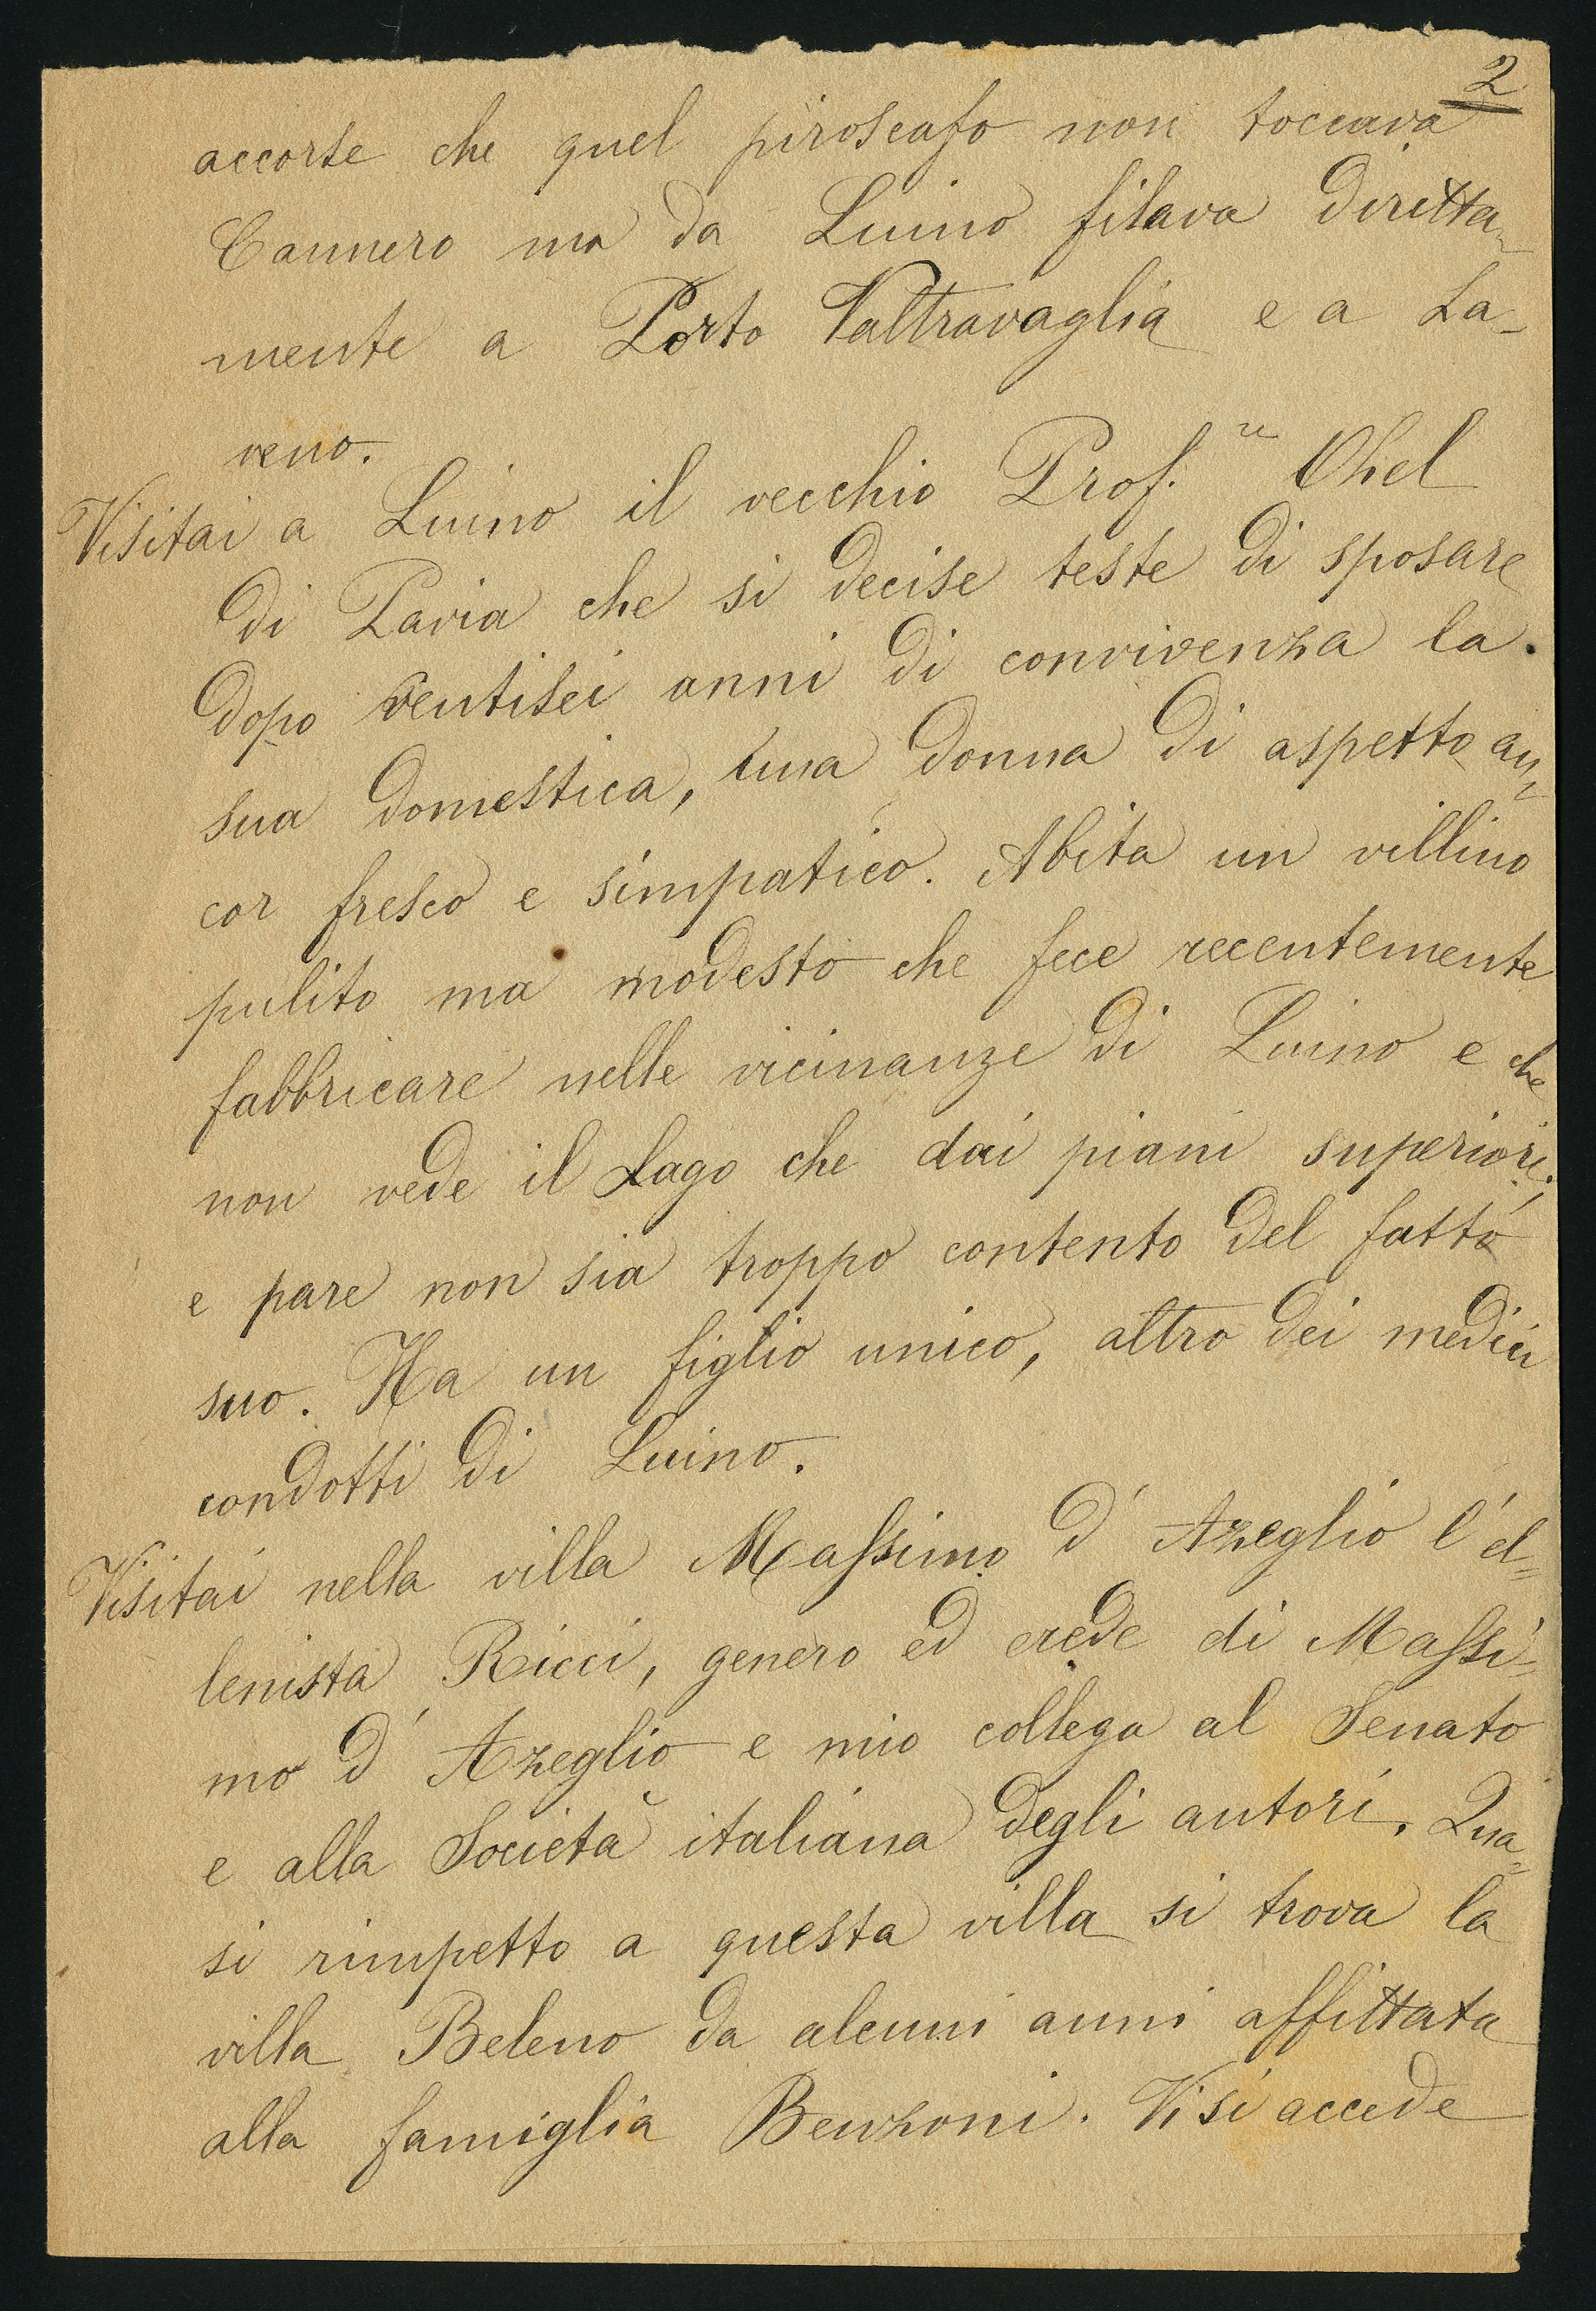 2
accorse che quel piroscafo non toccava
Cannero ma da Luino filava diretta=
mente a Porto Valtravaglia e a La-
veno.
Visitai a Luino il vecchio Prof.re Ohel
di Pavia che si decise teste di sposare
dopo ventisei anni di convivenza la
sua domestica, una donna di aspetto an=
cor fresco e simpatico. Abita un villino
pulito ma modesto che fece recentemente
fabbricare nelle vicinanze di Luino e che
non vede il Lago che dai piani superiori.
e pare non sia troppo contento del fatto
suo. Ha un figlio unico, altro dei medici
condotti di Luino.
Visitai nella villa Massimo d'Azeglio l'el=
lenista Ricci, genero ed erede di Massi=
mo d'Azeglio e mio collega al Senato
e alla Società italiana degli autori. Qua=
si rimpetto a questa villa si trova la
villa Beleno da alcuni anni affittata
alla famiglia Benzoni. Vi si accede